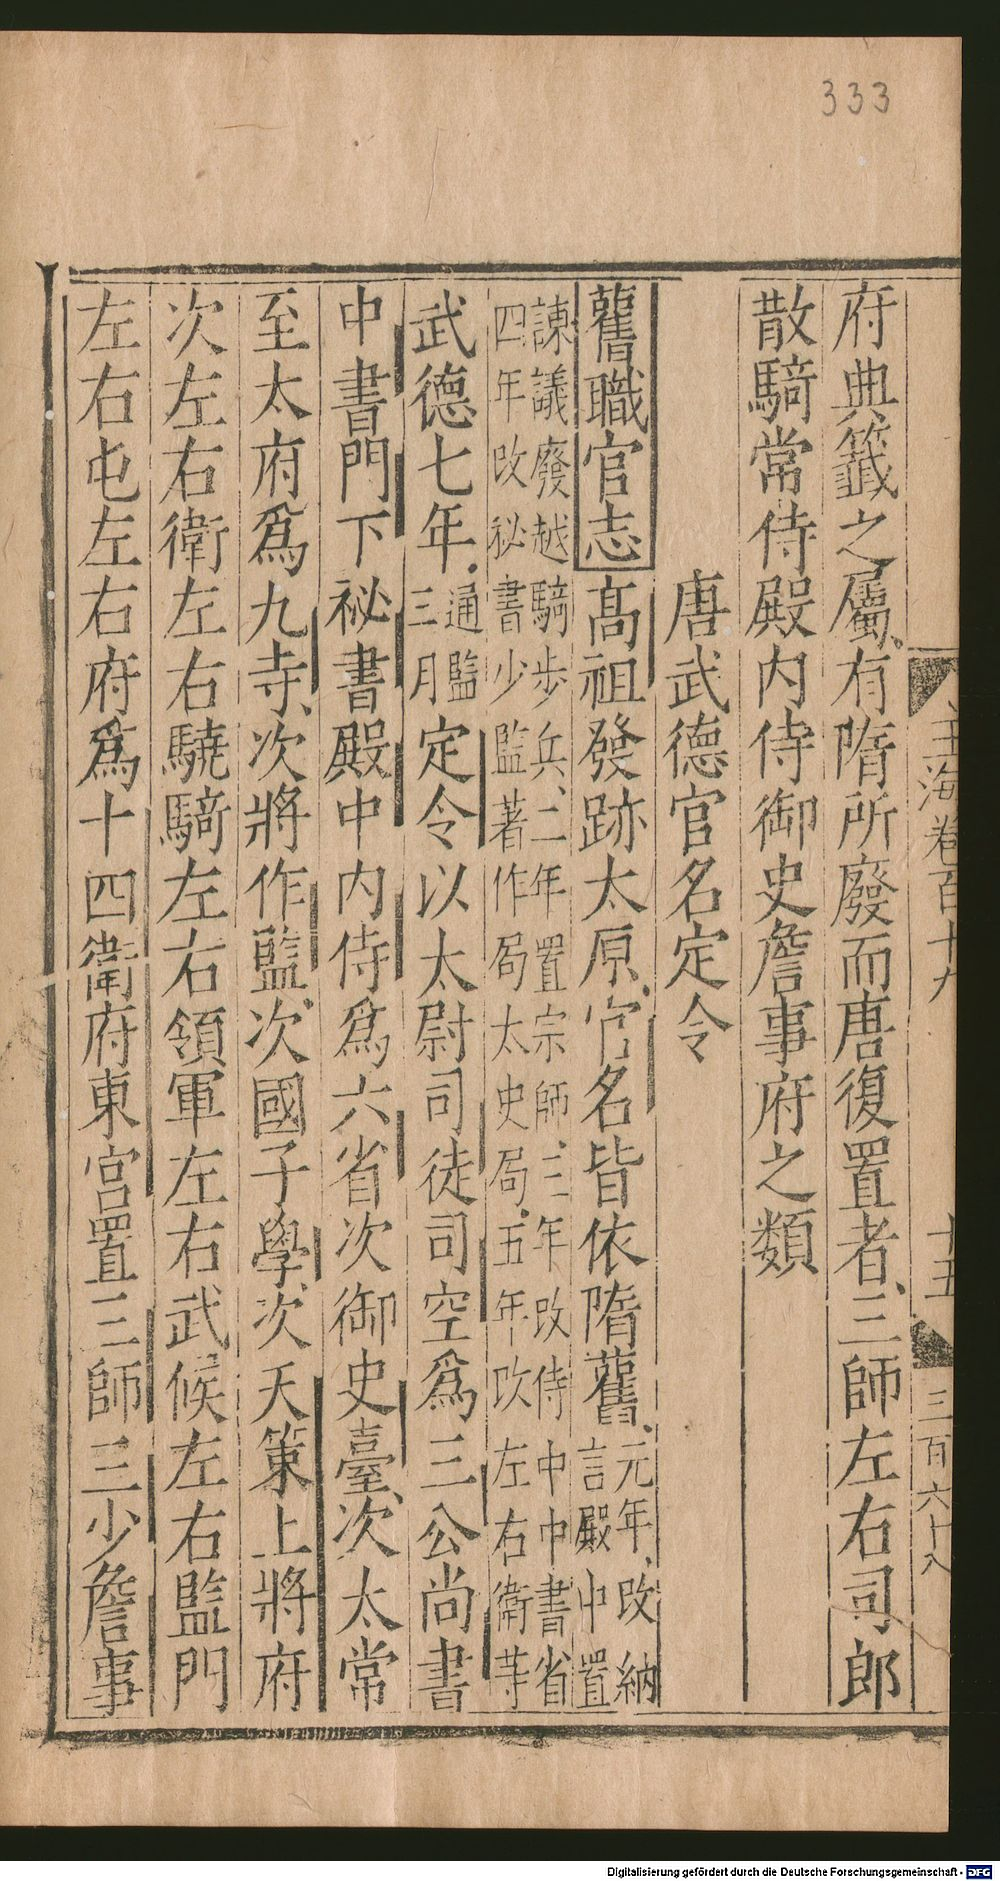 333
玉海卷百十九
十五
三百六十八
府典籤之屬有隋所廢而唐復置者三師左右司郎
散騎常侍殿内侍御史詹事府之類
唐武德官名定令
舊職官志髙祖發跡太原官名皆依隋舊元年改納
言殿中置
諫議廢越騎步兵二年置宗師三年改侍中中書省
四年改祕書少監著作局太史局五年改左右衛䓁
武德七年通監
三月定令以太尉司徒司空爲三公尚書
中書門下祕書殿中内侍爲六省次御史臺次太常
至太府爲九寺次將作監次國子學次天策上將府
次左右衛左右驍騎左右領軍左右武候左右監門
左右屯左右府爲十四衛府東宮置三師三少詹事
Digitalisierung gefördert durch die Deutsche Forschungsgemeinschaft - DFG